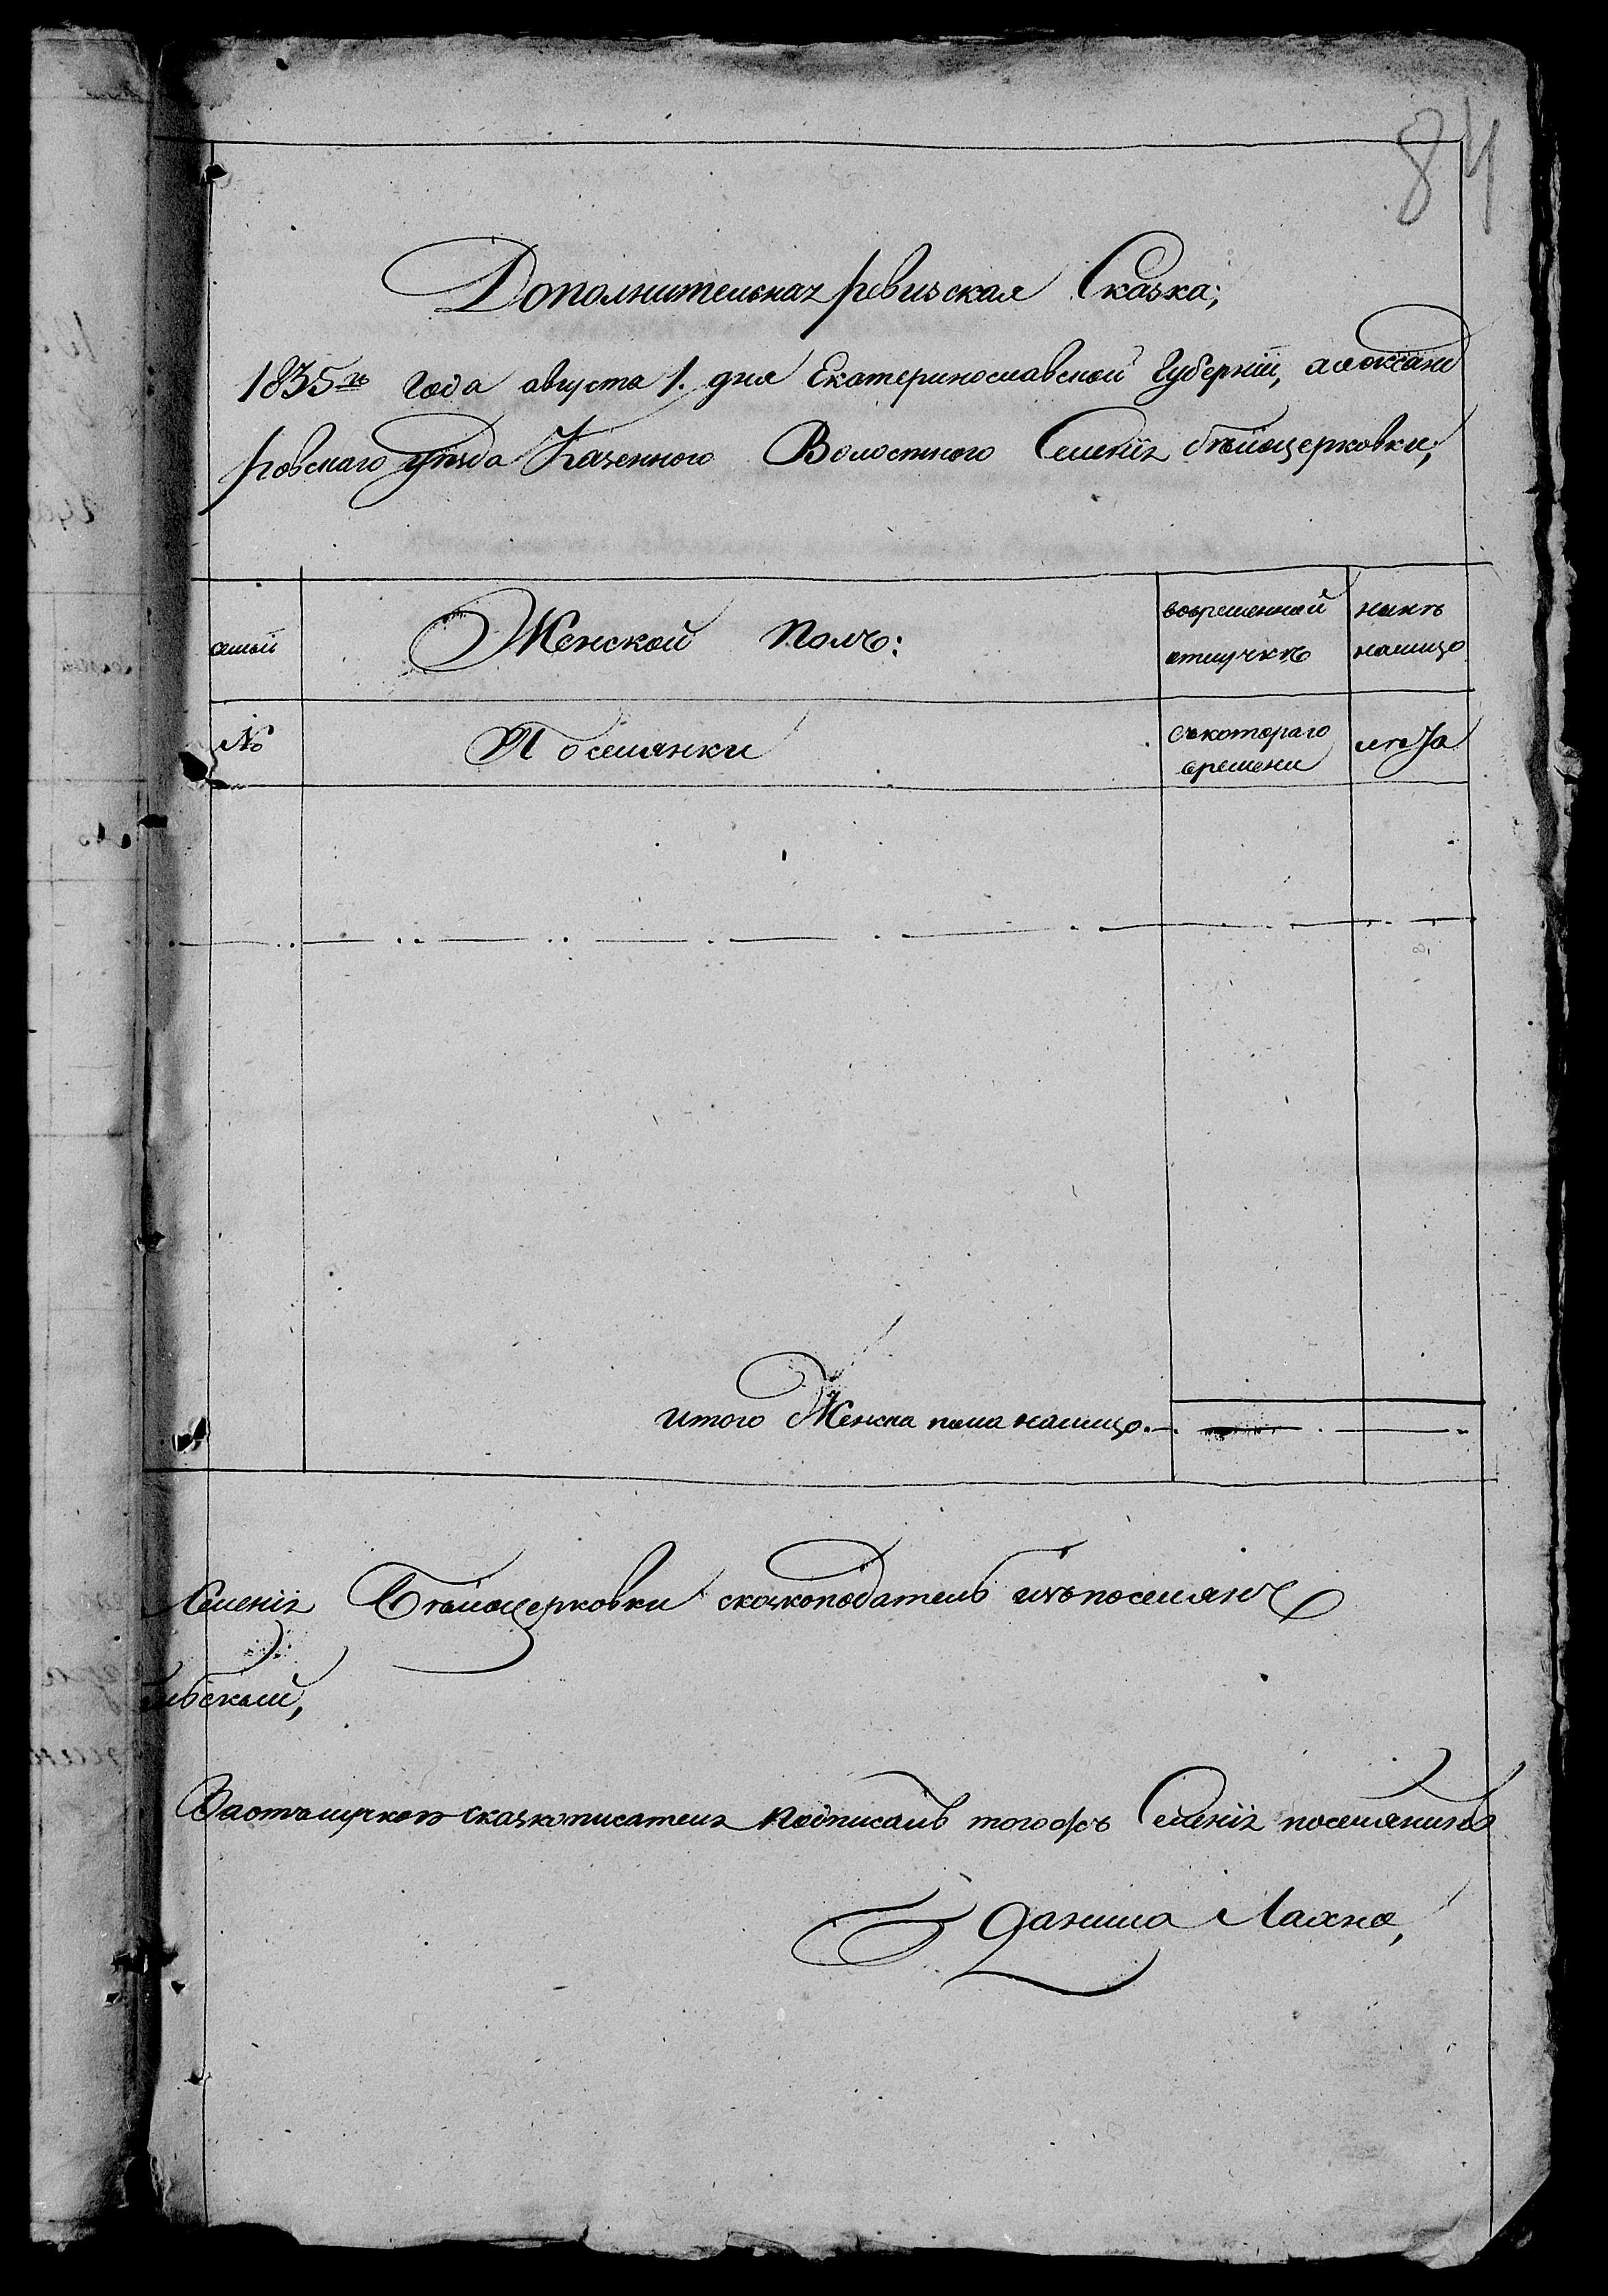 84
Дополнительная ревизская Сказка;
1835го года августа 1. дня Екатеринославской Губернїи, александ
ровскаго уѣзда Казенного Волостного Селенїя бѣлоцерковки;
Женской Полъ: вовременной нынѣ
отлучкѣ налицо
№ Поселянки съкотораго лѣта
времени
итого Женска пола налицо
Селенїя Бѣлоцерковки сказкоподатель изъпоселянъ
льский,
Занеграмотного сказкописателя подписалъ тогожъ Селенїя поселянинъ
данила Лахно,